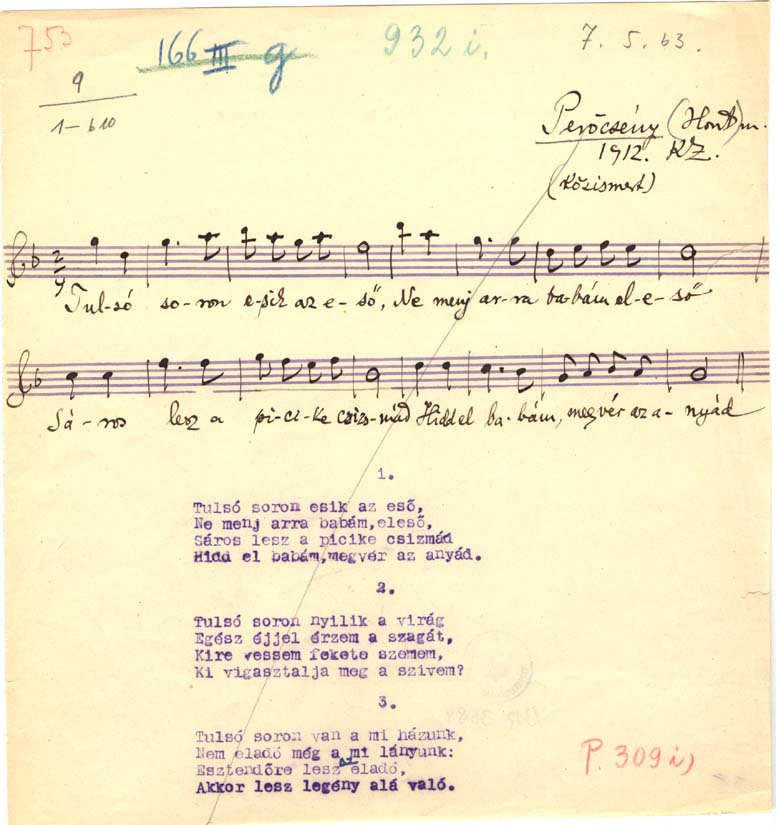 753
166 III g
932 i.
7. 5. 63.
9
1-b10
Perőcsény (Hont)m.
1912. KZ.
(közismert)
2
4
Tul-só so-ron e-sik az e-ső, Ne menj ar-ra ba-bám el-e-ső
Sá-ros lesz a pi-ci-ke csizs-mád Hidd el ba-bám, megvér az a-nyád
1.
Tulsó soron esik az eső,
Ne menj arra babám,eleső,
Sáros lesz a picike csizmád
Hidd el babám,megvér az anyád.
2.
Tulsó soron nyilik a virág
Egész éjjel érzem a szagát,
Kire vessem fekete szemem,
Ki vigasztalja meg a szivem?
3.
Tulsó soron van a mi házunk,
Nem eladó még a mi lányunk:
Esztendőre lesz az eladó,
Akkor lesz legény alá való.
P. 309 i)